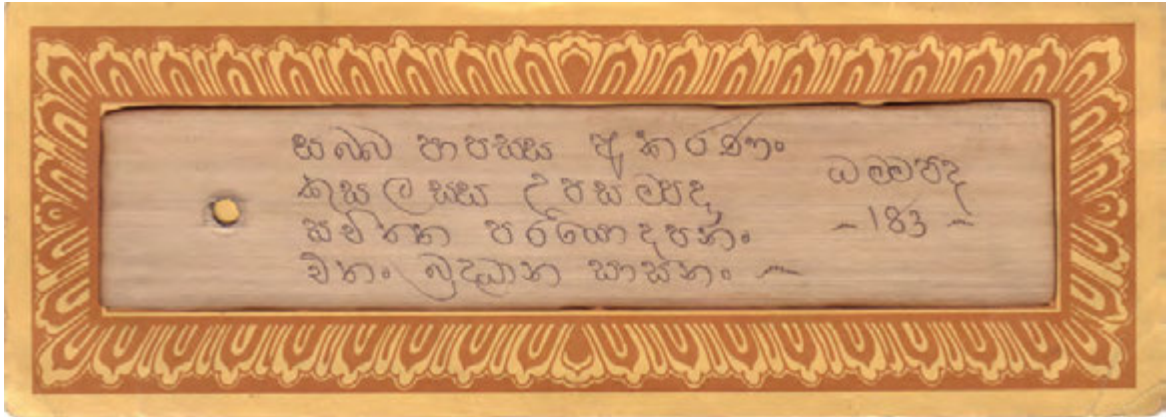 සබබ පාපසස අකරණං
කුසලසස උපසම්පද
සචිතත පරියොදපනං
එතං බුද්ධාන සාසනං
ධම්මපද
183